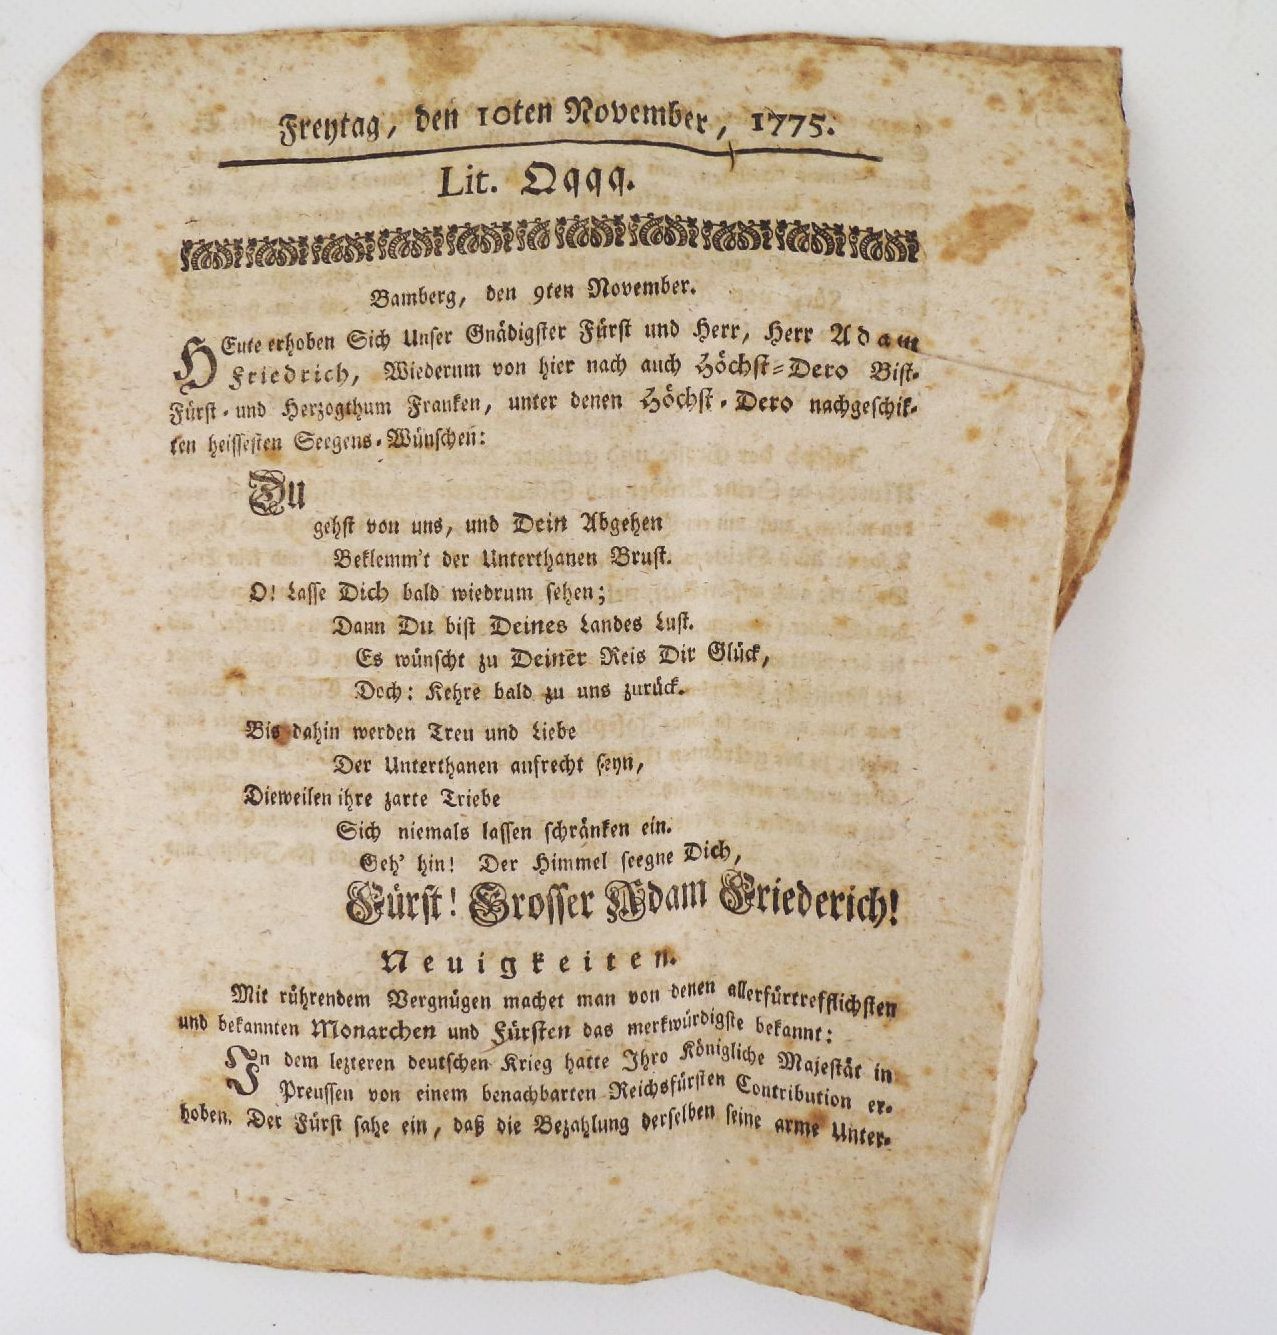 Freytag, den 10ten November, 1775.
Lit. Qqqq.
Bamberg, den 9ten November.
HEute erhoben Sich Unser Gnädigster Fürst und Herr, Herr Adam
Friedrich, Wiederum von hier nach auch Höchst-Dero Bist-
Fürst- und Herzogthum Franken, unter denen Höchst-Dero nachgeschik-
ten heissesten Seegens-Wünschen:
DU
gehst von uns, und Dein Abgehen
Beklemm't der Unterthanen Brust.
O! Lasse Dich bald wiedrum sehen;
Dann DU bist Deines Landes Lust.
Es wünscht zu Deiner Reis Dir Glück,
Doch: Kehre bald zu uns zurück.
Bis dahin werden Treu und Liebe
Der Unterthanen aufrecht seyn,
Dieweilen ihre zarte Triebe
Sich niemals lassen schränken ein.
Geh' hin! Der Himmel seegne Dich,
Fürst! Grosser Adam Friederich!
Neuigkeiten.
Mit rührendem Vergnügen machet man von denen allerfürtrefflichsten
und bekannten Monarchen und Fürsten das merkwürdigste bekannt:
In dem lezteren deutschen Krieg hatte Ihro Königliche Majestät in
Preussen von einem benachbarten Reichsfürsten Contribution er-
hoben. Der Fürst sahe ein, daß die Bezahlung derselben seine arme Unter-